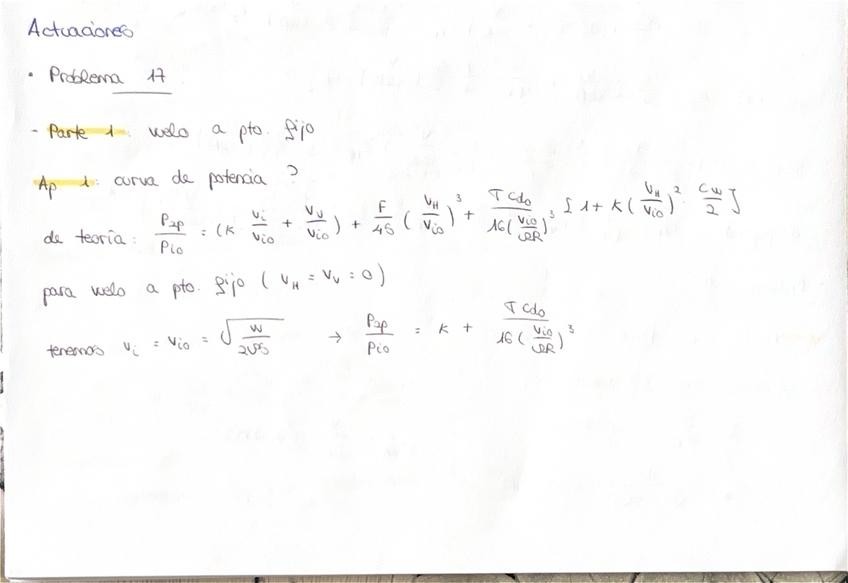 Actuaciones
• Problema 17
- Parte 1: vuelo a pto. fijo
Ap 1: curva de potencia?
de teoría: P2p/Pio = (K Vi/Vio + Vv/Vio) + F/4S (VH/Vio)^3 + σ Cdo/16(Vio/ΩR)^3 [1 + K(VH/Vio)^2 · Cw/2]
para vuelo a pto. fijo (VH = Vv = 0)
tenemos Vi = Vio = √(W/2ρS) → P2p/Pio = K + σ Cdo/16(Vio/ΩR)^3